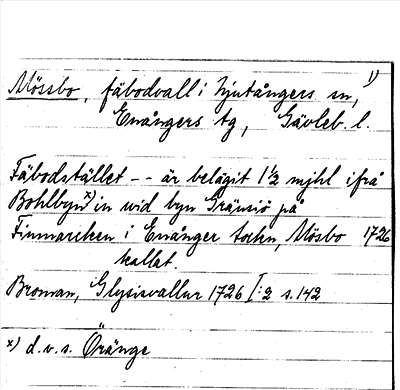 Mössbo, fäbodvall i Njutångers sn, 1)
Enångers tg, Gävleb. l.
Fäbodstället -- är belägit 1 1/2 mijhl ifrå
Bohlbyn x) in wid byn Gränsiö på
Finmarcken i Enånger sockn, Mösbo 1726
kallat.
Broman, Glysisvallur 1726 I:2 s. 142
x) d.v.s. Öränge